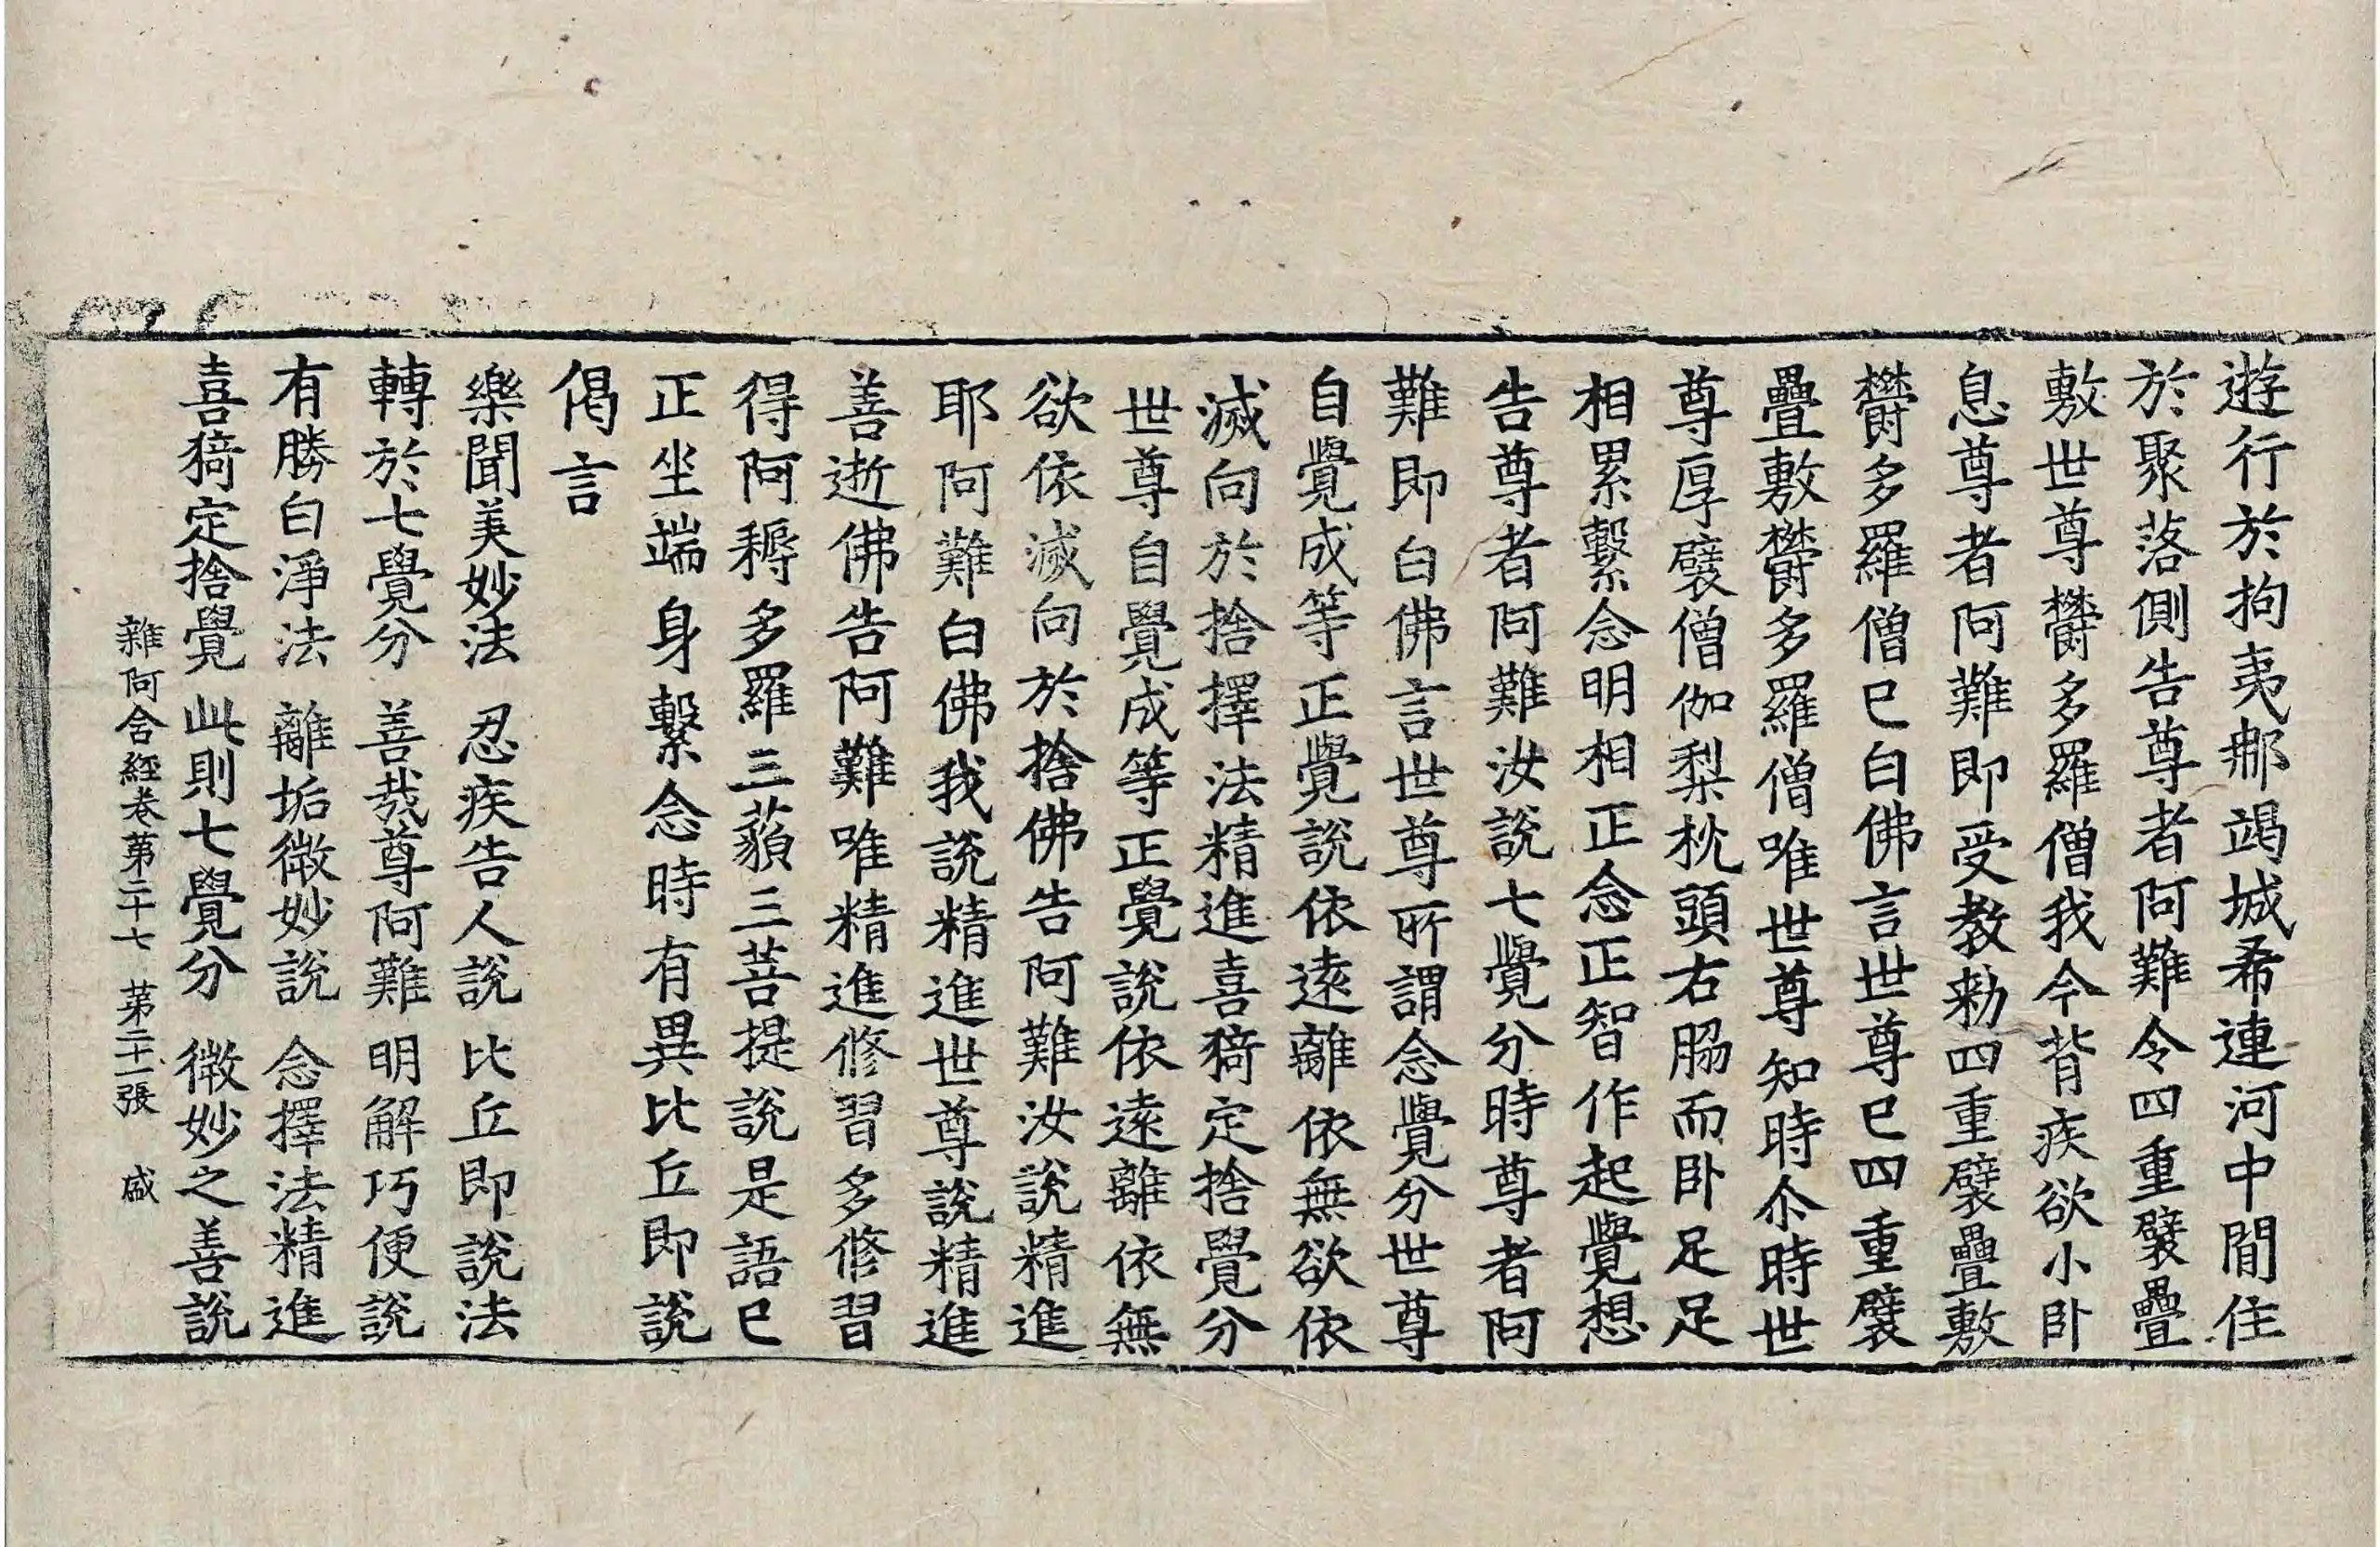 遊行於拘夷那竭城希連河中間住
於聚落側告尊者阿難令四重襞疊
敷世尊欝多羅僧我今背疾欲小卧
息尊者阿難即受教勑四重襞疊敷
欝多羅僧已白佛言世尊已四重襞
疊敷欝多羅僧唯世尊知時尒時世
尊厚襞僧伽梨枕頭右脇而卧足足
相累繫念明相正念正智作起覺想
告尊者阿難汝說七覺分時尊者阿
難即白佛言世尊所謂念覺分世尊
自覺成等正覺說依遠離依無欲依
滅向於捨擇法精進喜猗定捨覺分
世尊自覺成等正覺說依遠離依無
欲依滅向於捨佛告阿難汝說精進
耶阿難白佛我說精進世尊說精進
善逝佛告阿難唯精進修習多修習
得阿耨多羅三藐三菩提說是語已
正坐端身繫念時有異比丘即說
偈言
樂聞美妙法 忍疾告人說 比丘即說法
轉於七覺分 善哉尊阿難 明解巧便說
有勝白淨法 離垢微妙說 念擇法精進
喜猗定捨覺 此則七覺分 微妙之善說
雜阿含經卷第二十七 第二十一張 盛